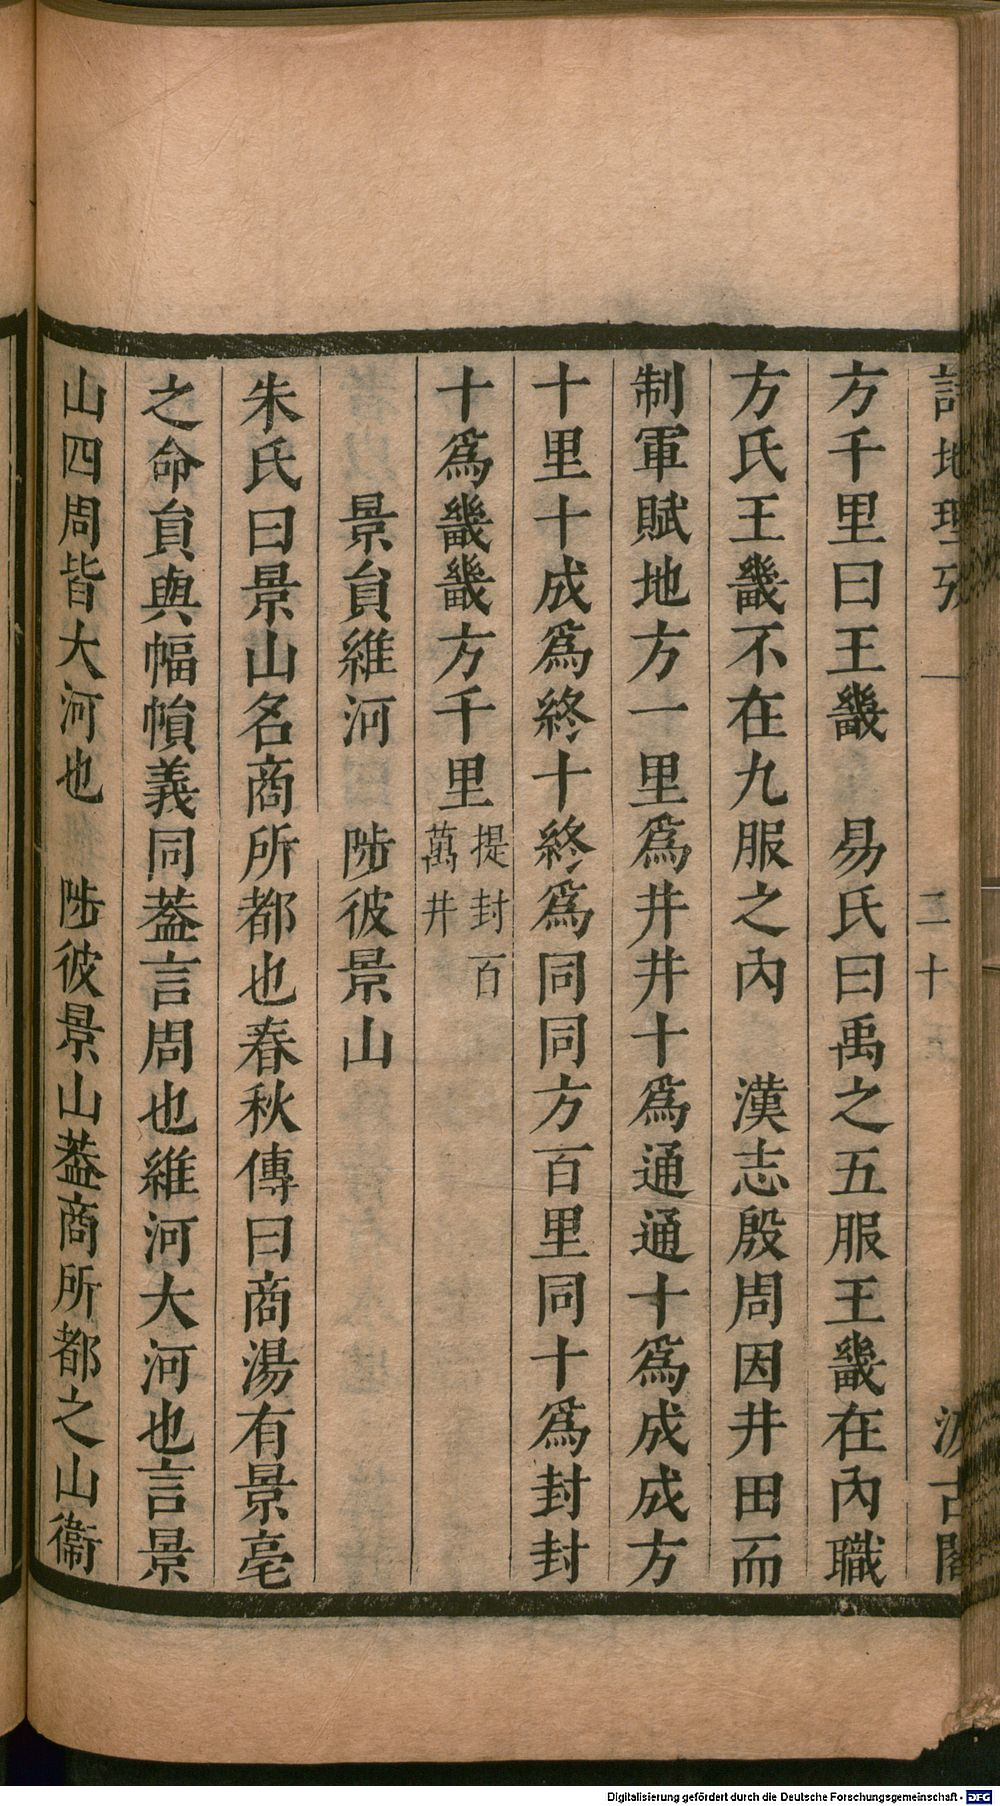 詩地理攷 一 二十 汲古閣
方千里曰王畿 易氏曰禹之五服王畿在內職
方氏王畿不在九服之內 漢志殷周因井田而
制軍賦地方一里爲井井十爲通通十爲成成方
十里十成爲終十終爲同同方百里同十爲封封
十爲畿畿方千里提封百萬井
景貟維河 陟彼景山
朱氏曰景山名商所都也春秋傳曰商湯有景亳
之命貟與幅幊義同葢言周也維河大河也言景
山四周皆大河也 陟彼景山葢商所都之山衞
Digitalisierung gefördert durch die Deutsche Forschungsgemeinschaft - DFG